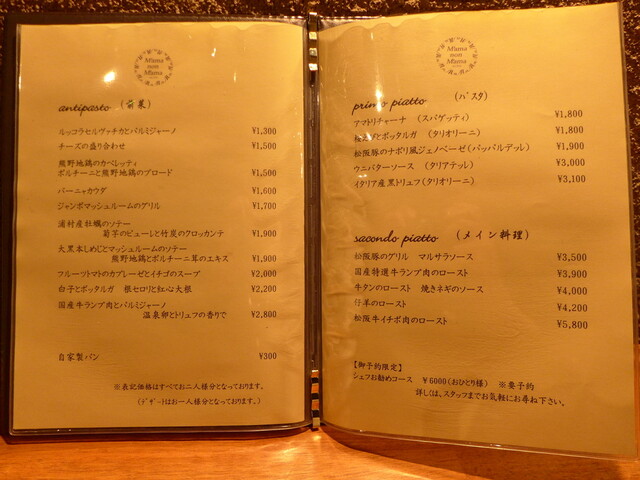 M'ama
non
M'ama
antipasto （前菜）
ルッコラセルヴァチカとパルミジャーノ ¥1,300
チーズの盛り合わせ ¥1,500
熊野地鶏のカペレッティ
ポルチーニと熊野地鶏のブロード ¥1,500
バーニャカウダ ¥1,600
ジャンボマッシュルームのグリル ¥1,700
浦村産牡蠣のソテー
菊芋のピューレと竹炭のクロッカンテ ¥1,900
大黒本しめじとマッシュルームのソテー
熊野地鶏とポルチーニ茸のエキス ¥1,900
フルーツトマトのカプレーゼとイチゴのスープ ¥2,000
白子とボッタルガ 根セロリと紅心大根 ¥2,200
国産牛ランプ肉とパルミジャーノ
温泉卵とトリュフの香りで ¥2,800
自家製パン ¥300
※表記価格はすべてお二人様分となっております。
（デザートはお一人様分となっております。）
M'ama
non
M'ama
primo piatto （パスタ）
アマトリチャーナ （スパゲッティ） ¥1,800
とボッタルガ （タリオリーニ） ¥1,800
松阪豚のナポリ風ジェノベーゼ（パッパルデッレ） ¥1,900
ウニバターソース （タリアテッレ） ¥3,000
イタリア産黒トリュフ（タリオリーニ） ¥3,100
sacondo piatto （メイン料理）
松阪豚のグリル マルサラソース ¥3,500
国産特選牛ランプ肉のロースト ¥3,900
牛タンのロースト 焼きネギのソース ¥4,000
仔羊のロースト ¥4,200
松阪牛イチボ肉のロースト ¥5,800
【御予約限定】
シェフお勧めコース ￥6000（おひとり様） ※要予約
詳しくは、スタッフまでお気軽にお尋ね下さい。